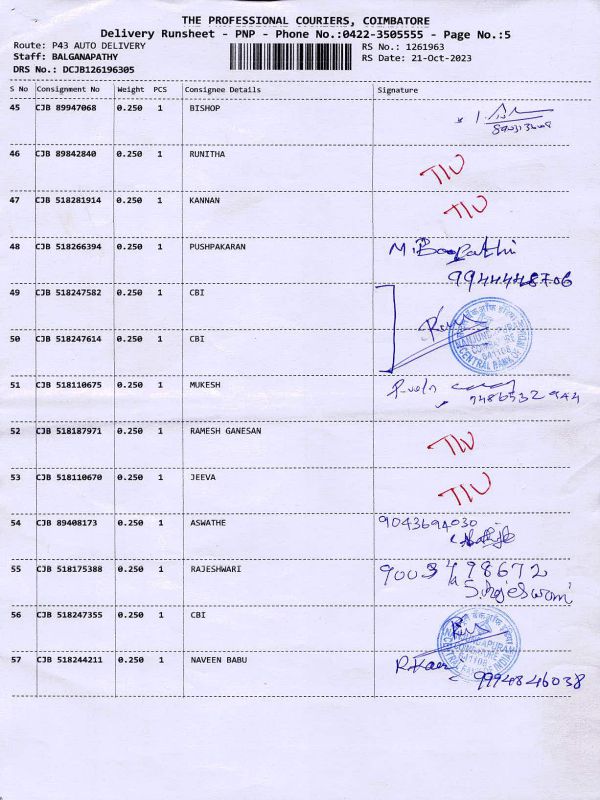 THE PROFESSIONAL COURIERS, COIMBATORE
Delivery Runsheet - PNP - Phone No.:0422-3505555 - Page No.:5
Route: P43 AUTO DELIVERY RS No.: 1261963
Staff: BALGANAPATHY RS Date: 21-Oct-2023
DRS No.: DCJB126196305
S No Consignment No Weight PCS Consignee Details Signature
45 CJB 89947068 0.250 1 BISHOP
46 CJB 89842840 0.250 1 RUNITHA
47 CJB 518281914 0.250 1 KANNAN
48 CJB 518266394 0.250 1 PUSHPAKARAN M.Boopathi
9944448706
49 CJB 518247582 0.250 1 CBI
50 CJB 518247614 0.250 1 CBI
COIMBATORE
641108
CENTRAL BANK OF INDIA
51 CJB 518110675 0.250 1 MUKESH
9486532944
52 CJB 518187971 0.250 1 RAMESH GANESAN
53 CJB 518110670 0.250 1 JEEVA
54 CJB 89408173 0.250 1 ASWATHE 9043694030
55 CJB 518175388 0.250 1 RAJESHWARI
S.Rajeswari
56 CJB 518247355 0.250 1 CBI
641108
57 CJB 518244211 0.250 1 NAVEEN BABU
9994846038